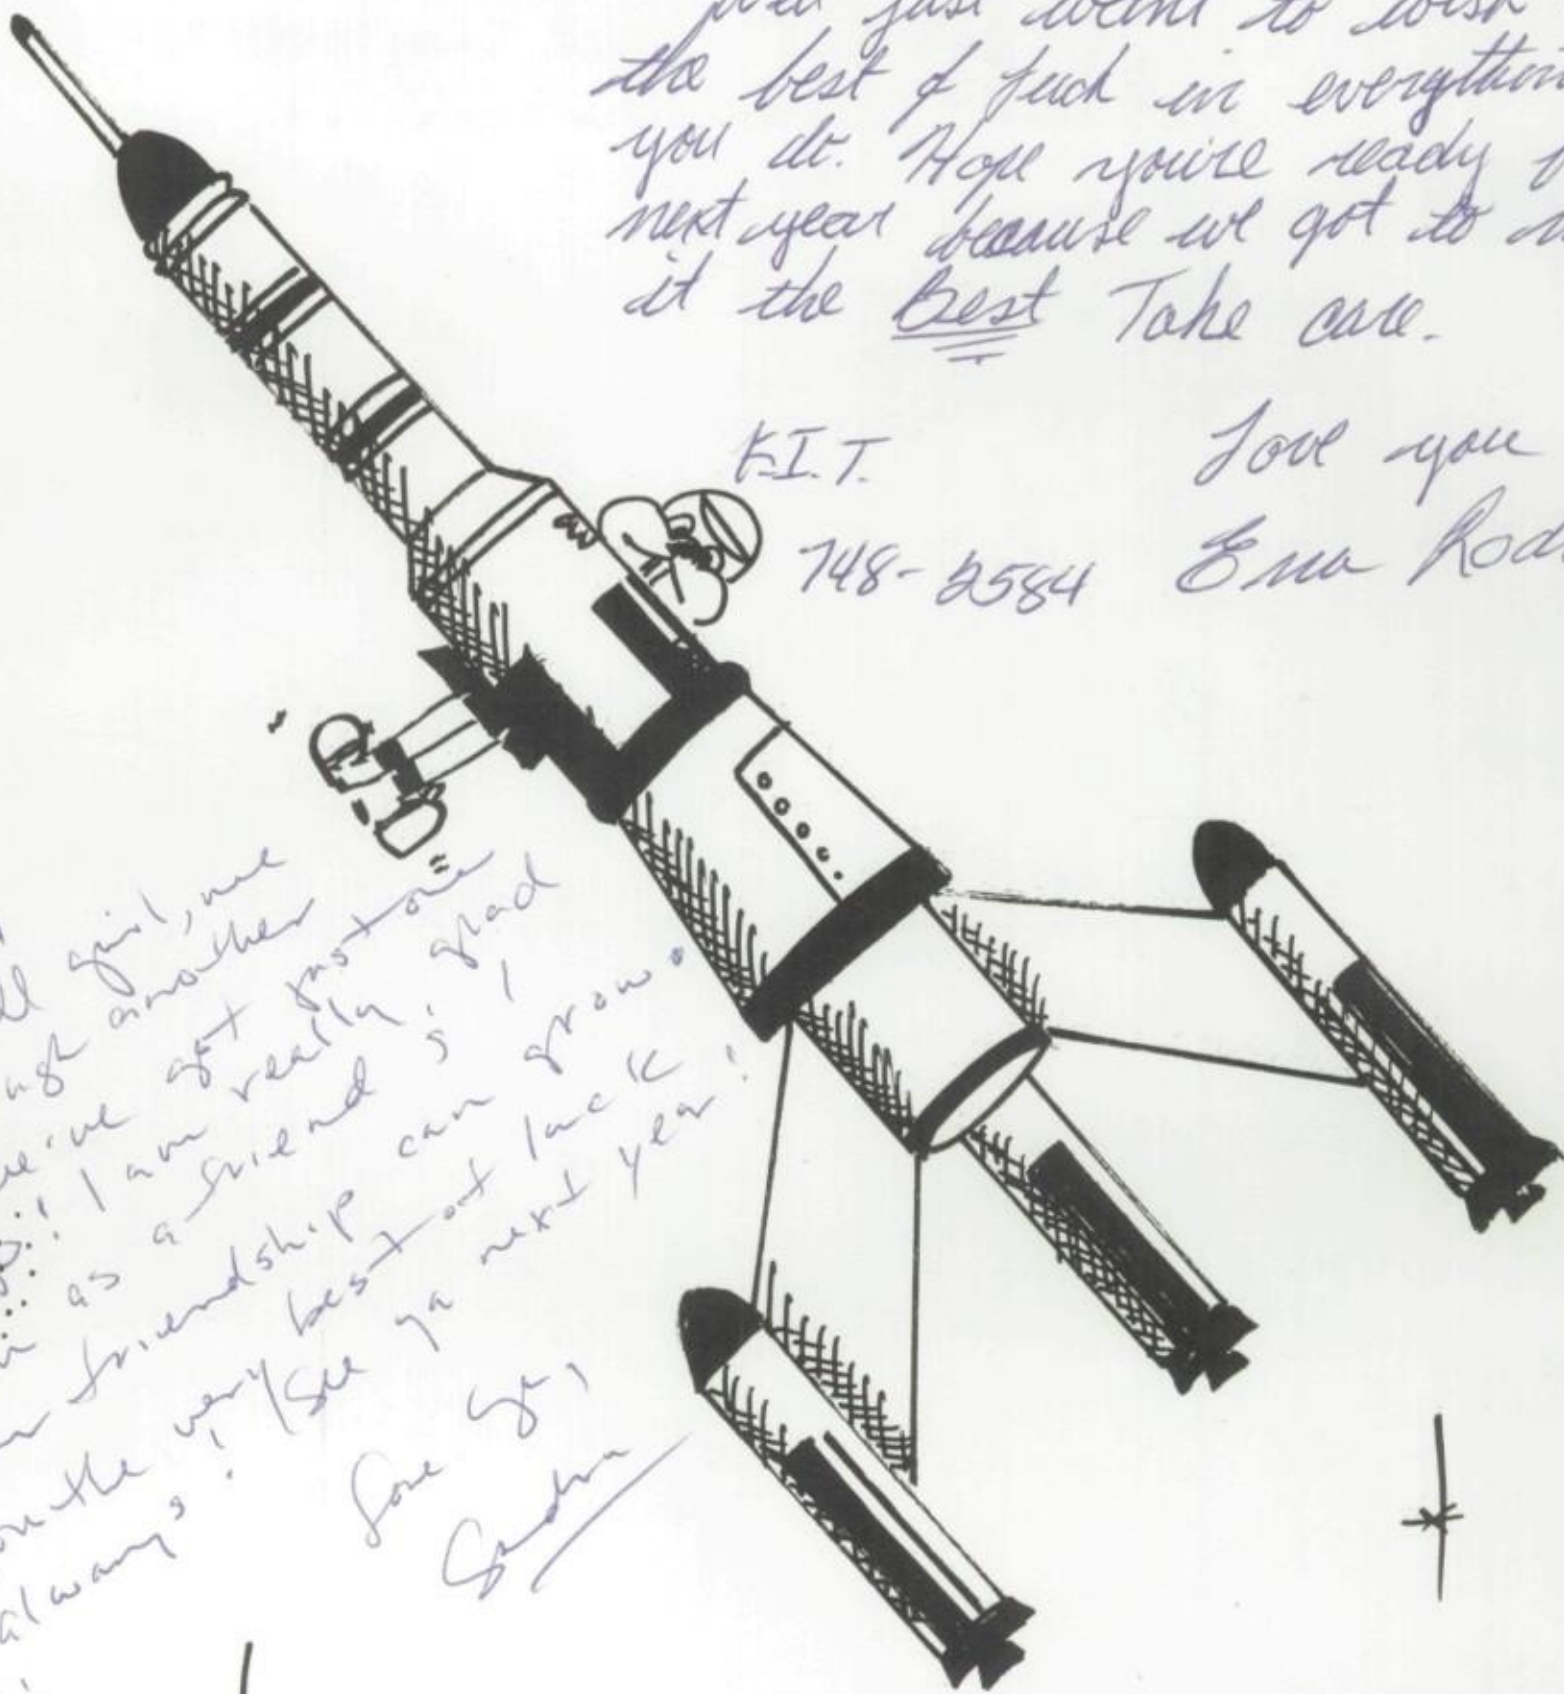 just want to wish
the best of luck in everythin
you do. Hope you're ready f
next year because we got to
it the Best Take care.
K.I.T.
Love you
748-2584
Ena Rod
girl, we
another
we've got just one
! I am really glad
as a friend, I
friendship can grow.
the very best of luck
always! See ya next year!
Love ya,
Sandra